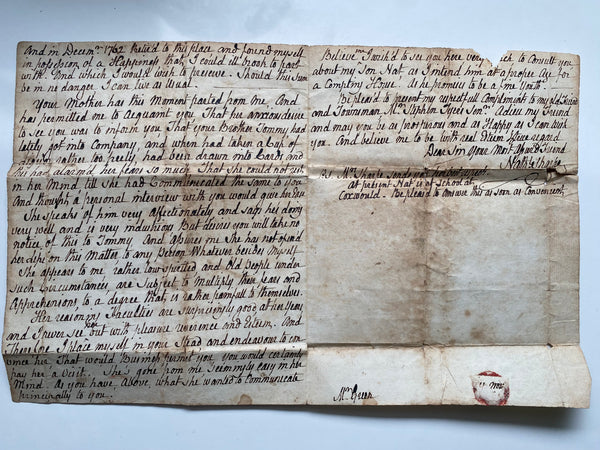 And in Decemr. 1762 Retired to this place and found myself
in possession of a Happiness that I could ill brook to part
with. And which I would wish to preserve. Should this
be in no danger I can live as Usual.
Your Mother has this Moment parted from me, And
has permitted me to Acquaint you That her anxious desire
to see you was to inform you That your Brother Tommy had
lately got into Company, and when taken a Cup of
rather too freely, had been drawn into Cards and
this had alarm'd her fears so much That she could not rest
in her Mind, till she had Communicated the same to you
And thought a personal interview with you would give her
She speaks of him very affectionately and says he's doing
very well and is very industrious But desires you will take no
notice of this to Tommy. And assures me She has not open'd
her lips on this Matter to any Person Whatever besides Myself
She appears to me, rather low spirited and Old People under
such Circumstances, are Subject to Multiply their fears and
Apprehensions, to a degree that is rather painfull to themselves.
Her reasoning Faculties are Surprizingly good at her Years
and I never see her but with pleasure reverence and Esteem. And
Therefore I place myself in your Stead and endeavour to con
vince her, That would Business permit you, you would certainly
pay her a Visit. She's gone from me Seemingly easy in her
Mind. As you have, Above, what she wanted to Communicate
principally to you.
Believe me I wish'd to see you here very much to Consult you
about my Son Nat, as I intend him at a proper Age for
a Compting House. As he promises to be a fine Youth.
Be pleas'd to present my respectfull Compliments to my old Friend
and Townsman Mr. Adieu my Friend
and may you be as prosperous and as Happy as I can wish
you. And believe me to be with real Esteem
Dear Sir Your Most Friend
Nath
PS Mrs. sends you her best respects
at present Nat is at School at
Coxwould. Be pleas'd to Answer this as soon as Convenient
Mr. Green